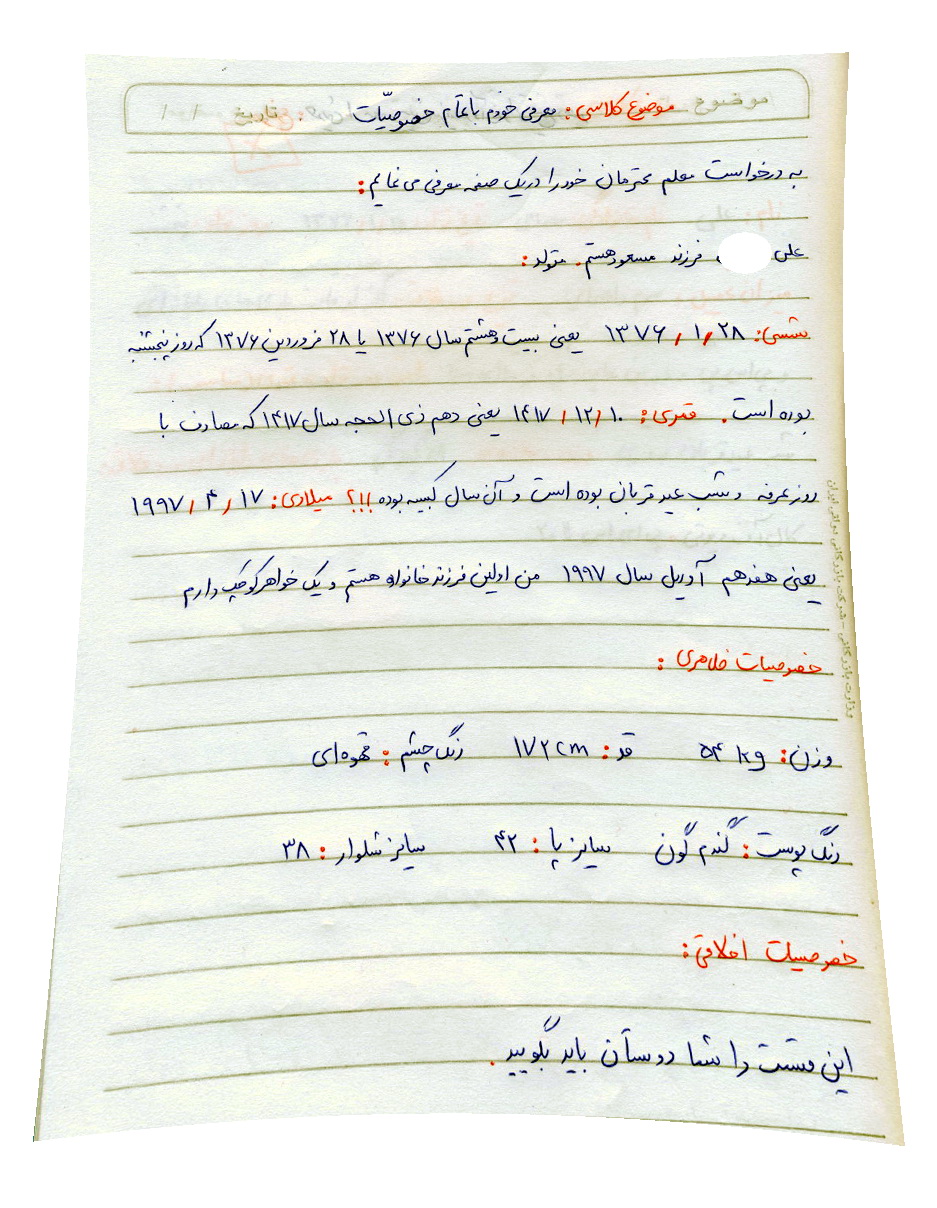 موضوع موضوع کلاسی: معرفی خودم با تمام خصوصیّات تاریخ / /
به درخواست معلم محترمان خود را در یک صفحه معرفی می نمایم:
علی فرزند مسعود هستم. متولد:
شمسی: ۱۳۷۶/۱/۲۸ یعنی بیست و هشتم سال ۱۳۷۶ یا ۲۸ فروردین ۱۳۷۶ که روز پنجشنبه
بوده است. قمری: ۱۴۱۷/۱۲/۱۰ یعنی دهم ذی الحجه سال ۱۴۱۷ که مصادف با
روز عرفه و شب عید قربان بوده است و آن سال کبیسه بوده !!؟ میلادی: ۱۹۹۷/۴/۱۷
یعنی هفدهم آوریل سال ۱۹۹۷ من اولین فرزند خانواده هستم و یک خواهر کوچک دارم
خصوصیات ظاهری:
وزن: ۵۴ kg قد: ۱۷۲ cm رنگ چشم: قهوه‌ای
رنگ پوست: گندم گون سایز پا: ۴۲ سایز شلوار: ۳۸
خصوصیات اخلاقی:
این قسمت را شما دوستان باید بگویید.
وزارت بازرگانی - شرکت بازرگانی دولتی ایران